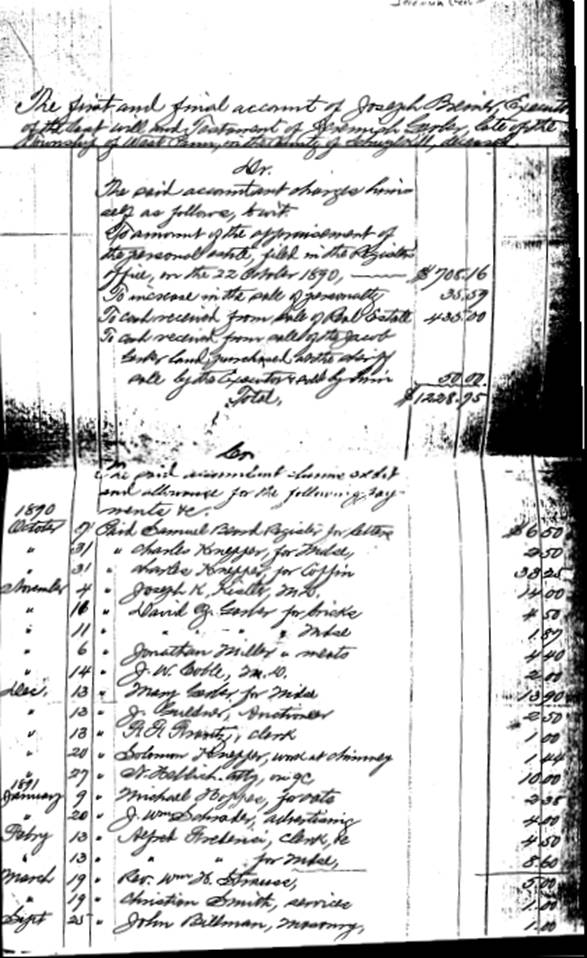 The first and final account of Joseph Executor
of the last will and Testament of Jeremiah late of the
Township of West Penn, in the County of Schuylkill, deceased.
Dr.
The said accountant charges him-
self as follows, to wit.
To amount of the appraisement of
the personal estate, filed in the Register
office, on the 22 October 1890, $708.16
To increase in the sale of personalty 35.59
To cash received from sale of Real Estate 435.00
To cash received from sale of the Jacob
land, purchased at the sheriff
sale by the Executor & sold by him 50.00
Total, $1228.95
Cr.
The said accountant claims credit
and allowance for the following pay-
ments &c.
1890
October 7 Paid Samuel Register for letters $6.50
" 31 " Charles Knepper, for Mdse, 2.50
" 31 " Charles Knepper, for Coffin 33.25
November 4 " Joseph K. M.D. 14.00
" 16 " David for bricks 4.50
" 11 " " " " Mdse 1.87
" 6 " Jonathan Miller " meats 4.40
" 14 " J. W. M.D. 2.00
Dec. 13 " Mary for Mdse 13.90
" 13 " J. Auctioneer 2.50
" 13 " clerk 1.00
" 20 " Solomon Knepper, work at chimney 1.44
" 27 " Atty, 10.00
1891
January 9 " Michael for 2.38
" 20 " J. Wm advertising 4.00
Febry 13 " Alfred clerk, &c 4.50
" 13 " " " for Mdse, 8.60
March 19 " Rev. Wm H. Strauss, 5.00
" 19 " Christian Smith, services 1.00
Sept 25 " John Billman, Masonry, 1.00